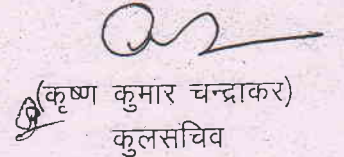 (कृष्ण कुमार चन्द्राकर)
कुलसचिव